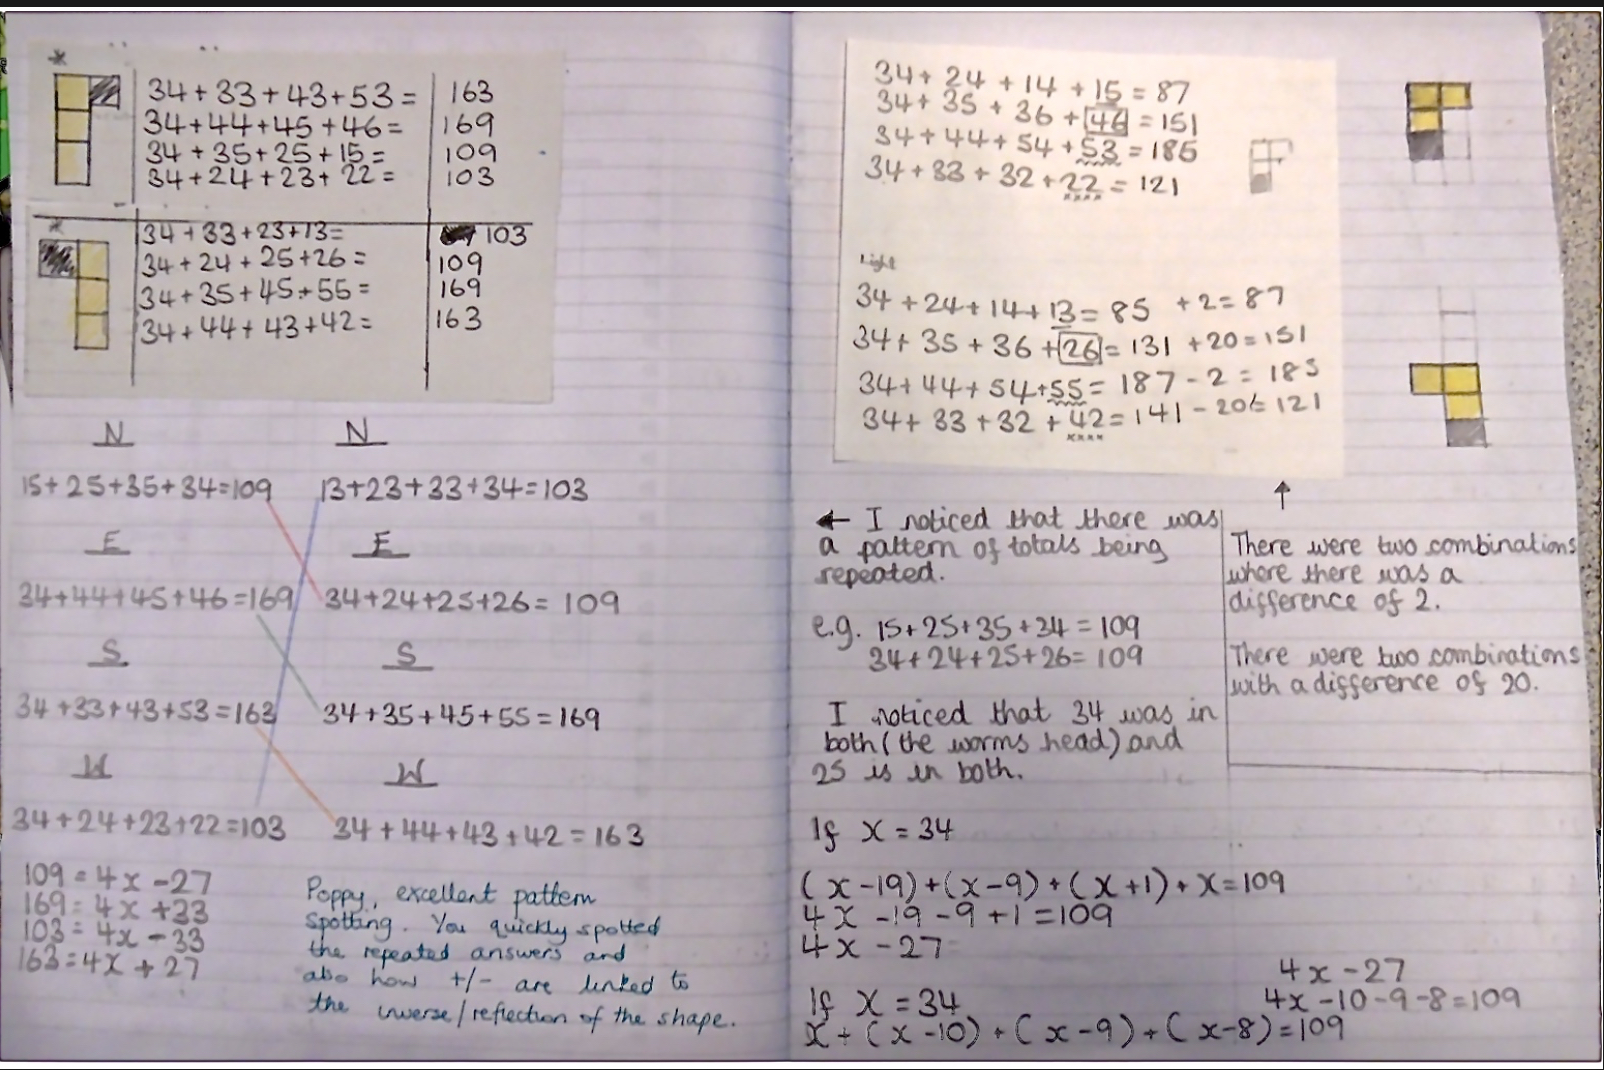 34+33+43+53= 163
34+44+45+46= 169
34+35+25+15= 109
34+24+23+22= 103
34+33+23+13= 103
34+24+25+26= 109
34+35+45+55= 169
34+44+43+42= 163
N N
15+25+35+34=109 13+23+33+34=103
E E
34+44+45+46=169 34+24+25+26=109
S S
34+33+43+53=163 34+35+45+55=169
W W
34+24+23+22=103 34+44+43+42=163
109=4x-27
169=4x+33
103=4x-33
163=4x+27
Poppy, excellent pattern
spotting. You quickly spotted
the repeated answers and
also how +/- are linked to
the inverse/reflection of the shape.
34+24+14+15=87
34+35+36+46=151
34+44+54+53=185
34+33+32+22=121
Light
34+24+14+13=85 +2=87
34+35+36+26=131 +20=151
34+44+54+55=187-2=185
34+33+32+42=141-20=121
← I noticed that there was
a pattern of totals being
repeated.
e.g. 15+25+35+34=109
34+24+25+26=109
I noticed that 34 was in
both (the worms head) and
25 is in both.
There were two combinations
where there was a
difference of 2.
There were two combinations
with a difference of 20.
If x=34
(x-19)+(x-9)+(x+1)+x=109
4x-19-9+1=109
4x-27
If x=34
x+(x-10)+(x-9)+(x-8)=109
4x-27
4x-10-9-8=109